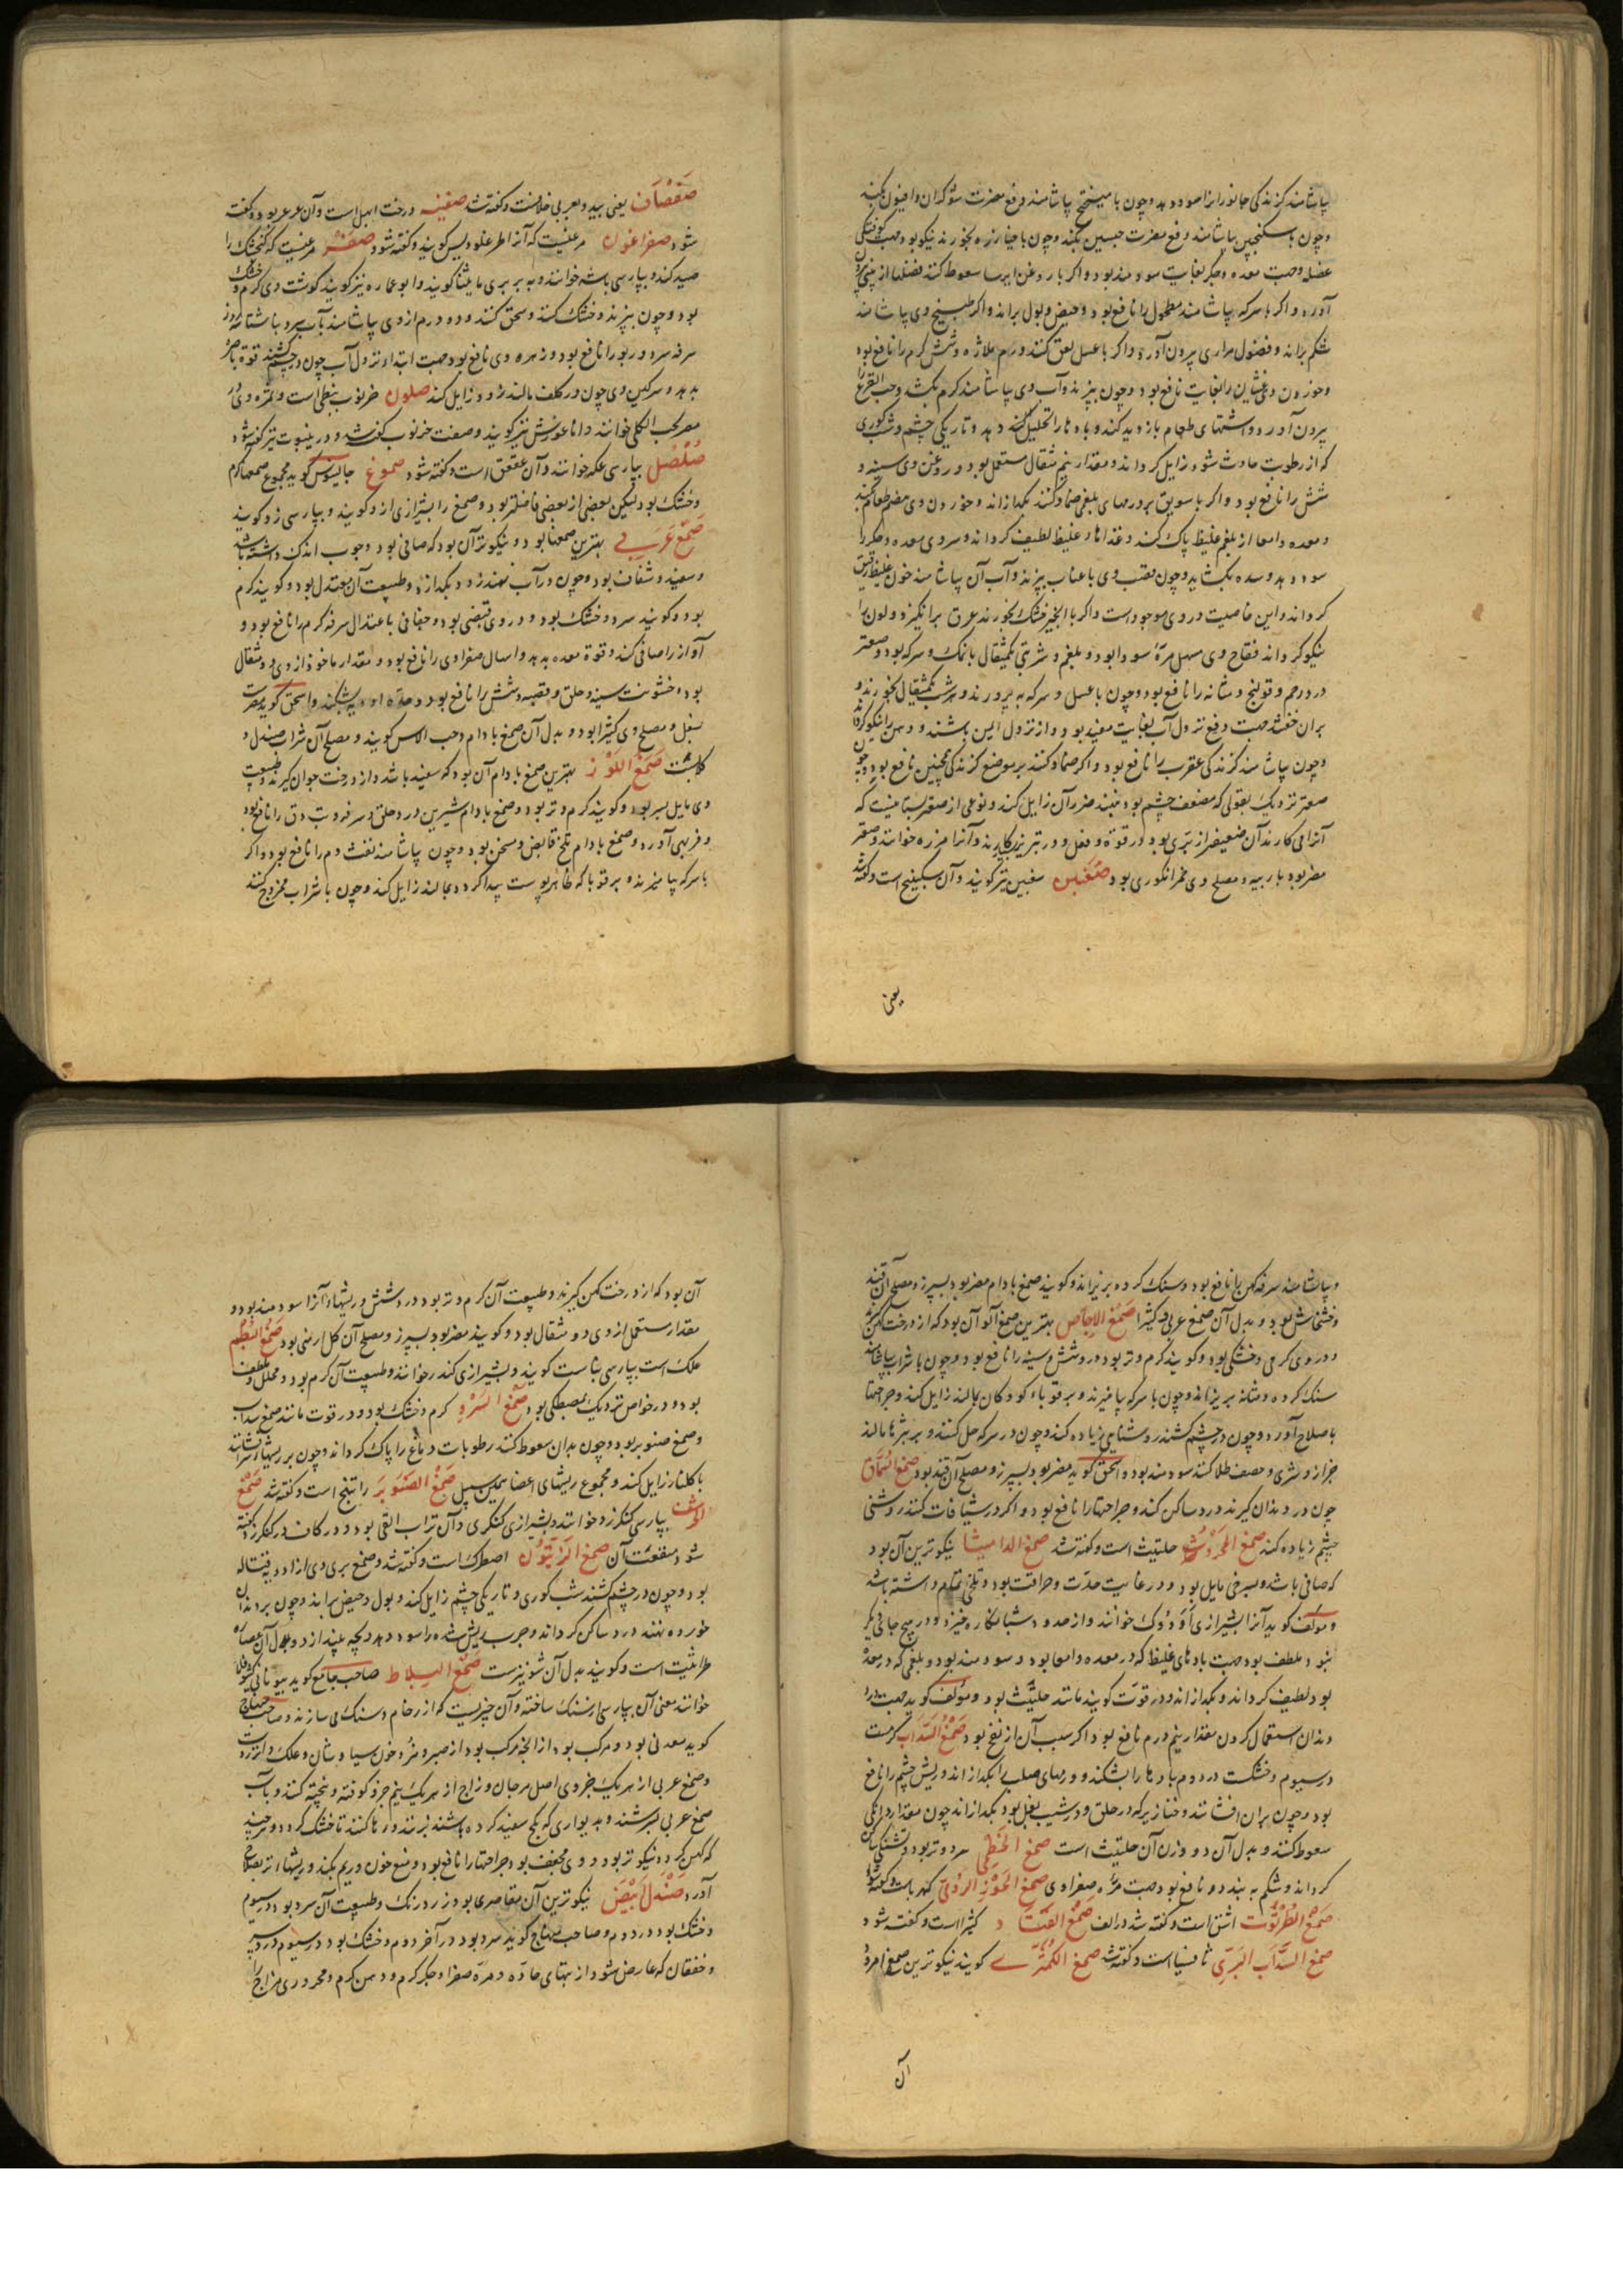 بیاشامند گزندگی جانوران را سود دهد و چون با میپختج بیاشامند دفع مضرت شوکران و افیون بکند
و چون با سکنجبین بیاشامند دفع مضرت جبسین بکند و چون با خیار تره بخورند نیکو بود جهت کوفتگی
عضل و جهت معده و جگر بغایت سودمند بود و اگر با روغن ایرسا سعوط کنند فضلها از بینی بیرون
آورد و اگر با سرکه بیاشامند مطحول را نافع بود و حیض و بول براند و اگر طبیخ وی بیاشامند
شکم براند و فضول مراری بیرون آورد و اگر با عسل لعق کنند ورم ملازه و شش گرم را نافع بود
و خوردن وی غثیان را بغایت نافع بود و چون بپزند و آب وی بیاشامند کرم بکشد و حب القرع را
بیرون آورد و اشتهای طعام بازدید کند و بادها را تحلیل کند و تاریکی چشم و شب کوری
که از رطوبت حادث شود زایل گرداند و مقدار پنج مثقال مستعمل بود و روغن وی سینه و
شش را نافع بود و اگر با سویق بر ورمهای بلغمی ضماد کنند بگدازاند و خوردن وی هضم طعام کند
و معده و امعا از بلغم غلیظ پاک کند و غذاهاء غلیظ لطیف گرداند و سردی معده و جگر را
سود دهد و سده بگشاید و چون قضیب وی با عناب بپزند و آب آن بیاشامند خون غلیظ رقیق
گرداند و این خاصیت در وی موجود است و اگر با انجیر خشک بخورند عرق برانگیزد و لون را
نیکو گرداند فقاح وی مسهل مرهٔ سودا بود و بلغم و شربتی یکمثقال با نمک و سرکه بود و صعتر
درد رحم و قولنج و مثانه را نافع بود و چون با عسل و سرکه بپرورند و هر شب یکمثقال بخورند و
بران خفتند جهت دفع نزول آب بغایت مفید بود و از نزول ایمن باشند و ذهن را نیکو گرداند
و چون بیاشامند گزندگی عقرب را نافع بود و اگر ضماد کنند بر موضع گزندگی همچنین نافع بود و چون
صعتر نزدیک بقولی که مضعف چشم بود بنهند ضرر آن زایل کند و نوعی از صعتر بستانیست که
آنرا می کارند آن ضعیفتر از بری بود در قوة و فعل و در تبریز بکار برند و آنرا مرزه خوانند و صعتر
مضر بود بار بیه و مصلح وی خمر انگوری بود صغبین سغبین نیز گویند و آن سکبینج است و گفته
یعنی
صفصاف یعنی بید و بعربی خلافست و گفته شد صفینه درخت ابهل است و آن عرعر بود و گفته
شود صفراغون مرغیست که آنرا طرغلودیس گویند و گفته شود صفر مرغیست که گنجشک را
صید کند و بپارسی باشه خوانند و به بربری ماینثا گویند و ابو عماره نیز گویند گوشت وی گرم و خشک
بود و چون بپزند و خشک کنند و سحق کنند و دو درم از وی بیاشامند بآب سرد با شتا سه روز
سرفه سرد و ربو را نافع بود و زهره وی نافع بود جهت ابتداء نزول آب چون در چشم کشند قوة باصره
بدهد و سرگین وی چون در کلف مالند زود زایل کند صلون خرنوب نبطی است و ثمره وی در
مصر حب الکلی خوانند و اناغورس نیز گویند و صفت خرنوب گفته شد و در ینبوت نیز گفته شود
صلصل بپارسی عکه خوانند و آن عقعق است و گفته شود صموغ جالینوس گوید مجموع صمغها گرم
و خشک بود لیکن بعضی از بعضی فاضلتر بود و صمغ را بشیرازی ازدو گویند و بپارسی زدو گویند
صمغ عربی بهترین صمغها بود و نیکوترین آن بود که صافی بود و چوب اندک داشته باشد
و سفید و شفاف بود و چون در آب نهند زود بگدازد و طبیعت آن معتدل بود و گویند گرم
بود و گویند سرد و خشک بود و در وی قبضی بود و جفافی باعتدال سرفه گرم را نافع بود و
آواز را صافی کند و قوة معده بدهد و اسهال صفراوی را نافع بود و مقدار ماخوذ از وی دو مثقال
بود و خشونت سینه و حلق و قصبه و شش را نافع بود و حدة ادویه بشکند و اسحق گوید مضر است
بسفل و مصلح وی کثیرا بود و بدل آن صمغ بادام و حب الاس گویند و مصلح آن شراب صندل و
گلابست صمغ اللوز بهترین صمغ بادام آن بود که سفید باشد و از درخت جوان گیرند و طبیعت
وی مایل بسردی بود و گویند گرم و تر بود و صمغ بادام شیرین درد حلق و سرفه و تب دق را نافع بود
و فربهی آورد و صمغ بادام تلخ قابض و مسخن بود و چون بیاشامند نفث دم را نافع بود و اگر
با سرکه بیامیزند و بر قوبا که ظاهر پوست پیدا گردد بمالند زایل کند و چون با شراب ممزوج کنند
و بیاشامند سرفه کهن را نافع بود و سنگ گرده بریزاند و گویند صمغ بادام مضر بود بسپرز و مصلح آن قند
و خشخاش بود و بدل آن صمغ عربی و کثیرا صمغ الاجاص بهترین صمغ آلو آن بود که از درخت کهن گیرند
و در وی گرمی و خشکی بود و گویند گرم و تر بود و درد شش و سینه را نافع بود و چون با شراب بیاشامند
سنگ گرده و مثانه بریزاند و چون با سرکه بیامیزند و بر قوباء کودکان بمالند زایل کند و جراحتها
باصلاح آورد و چون در چشم کشند روشنایی زیاده کند و چون در سرکه حل کنند و بر بثرها مالند
جزاز و شری و حصف طلا کنند سودمند بود و اسحق گوید مضر بود بسپرز و مصلح آن قند بود صمغ السماق
چون در دندان گیرند درد ساکن کند و جراحتها را نافع بود و اگر در شیافات کنند روشنی
چشم زیاده کند صمغ المحروث حلتیث است و گفته شد صمغ الدامیثا نیکوترین آن بود
که صافی باشد و بسرخی مایل بود و در غایت حدت و حرافت بود و تلخی تمام داشته باشد
و مولف گوید آنرا بشیرازی اوذوک خوانند و از حدود شبانکاره خیزد و در هیچ جای دیگر
نبود ملطف بود جهت بادهای غلیظ که در معده و امعا بود سودمند بود و بلغمی که در معده
بود لطیف گرداند و بگدازاند و در قوت گویند مانند حلتیث بود و مولف گوید جهت درد
دندان استعمال کردن مقدار نیم درم نافع بود اگر سبب آن از نفخ بود صمغ السداب گرمست
در سیوم و خشکست در دوم بادها را بشکند و ورمهای صلب را بگدازاند و ریش چشم را نافع
بود و چون بران افشانند و خنازیر که در حلق و در شیب بغل بود بگدازاند چون مقدار دانگی
سعوط کنند و بدل آن دو وزن آن حلتیث است صمغ الخطمی سرد و تر بود و تشنگی ساکن
گرداند و شکم به بندد و نافع بود جهت مره صفراوی صمغ الجوز الرومی کهرباست و گفته شود
صمغ الطرثوث اشق است و گفته شد در الف صمغ القتاد کثیرا است و گفته شود
صمغ السداب البری ثافسیا است و گفته شد صمغ الکمثری گویند نیکوترین صمغ امرود
آن
آن بود که از درخت کهن گیرند و طبیعت آن گرم و تر بود و درد شش و ریشهاء آنرا سودمند بود و
مقدار مستعمل از وی دو مثقال بود و گویند مضر بود بسپرز و مصلح آن گل ارمنی بود صمغ البطم
علک است بپارسی بناست گویند و بشیرازی کندر خوانند و طبیعت آن گرم بود و محلل و ملطف
بود و در خواص نزدیک بمصطکی بود صمغ السرو گرم و خشک بود و در قوت مانند صمغ سداب
و صمغ صنوبر بود و چون بدان سعوط کنند رطوبات دماغ را پاک گرداند و چون بر ریشها افشانند
با گلنار زایل کند و مجموع ریشهای اعضا همین سبیل صمغ الصنوبر راتینج است و گفته شد صمغ
الحرشف بپارسی کنگرزد خوانند و بشیرازی کنگری و آن تراب القی بود و در کاف در کنگرزد گفته
شود منفعت آن صمغ الزیتون اصطرک است و گفته شد و صمغ بری وی از ادویه قتاله
بود و چون در چشم کشند شب کوری و تاریکی چشم زایل کند و بول و حیض براند و چون بر دندان
خورده نهند درد ساکن گرداند و جرب ریش شده را سود دهد و بچه بیندازد و بدل آن عصاره
طراثیث است و گویند بدل آن شونیزست صمغ البلاط صاحب جامع گوید بیونانی
خوانند معنی آن بپارسی از سنگ ساخته و آن چیزیست که از رخام و سنگ می سازند و صاحب منهاج
گوید معدنی بود و مرکب بود از آنچه مرکب بود از صبر و مر و خون سیاوشان و علک و انزروت
و صمغ عربی از هر یک جزوی اصل مرجان و زاج از هر یک نیم جزو کوفته و بیخته کنند و بآب
صمغ عربی بسرشند و بدیواری که بگچ سفید کرده باشند بزنند و رها کنند تا خشک گردد و هر چند
که کهن گردد نیکوتر بود و وی مجفف بود جراحتها را نافع بود و منع خون و ریم بکند و ریشها تر بصلاح
آورد صندل ابیض نیکوترین آن مقاصری بود زرد رنگ و طبیعت آن سرد بود در سیوم
و خشک بود در دوم و صاحب منهاج گوید سرد بود در آخر دوم و خشک بود در سیوم درد سر
و خفقان که عارض شود از تبهای حاده و مره صفرا و جگر گرم و دهن گرم و محروری مزاج را